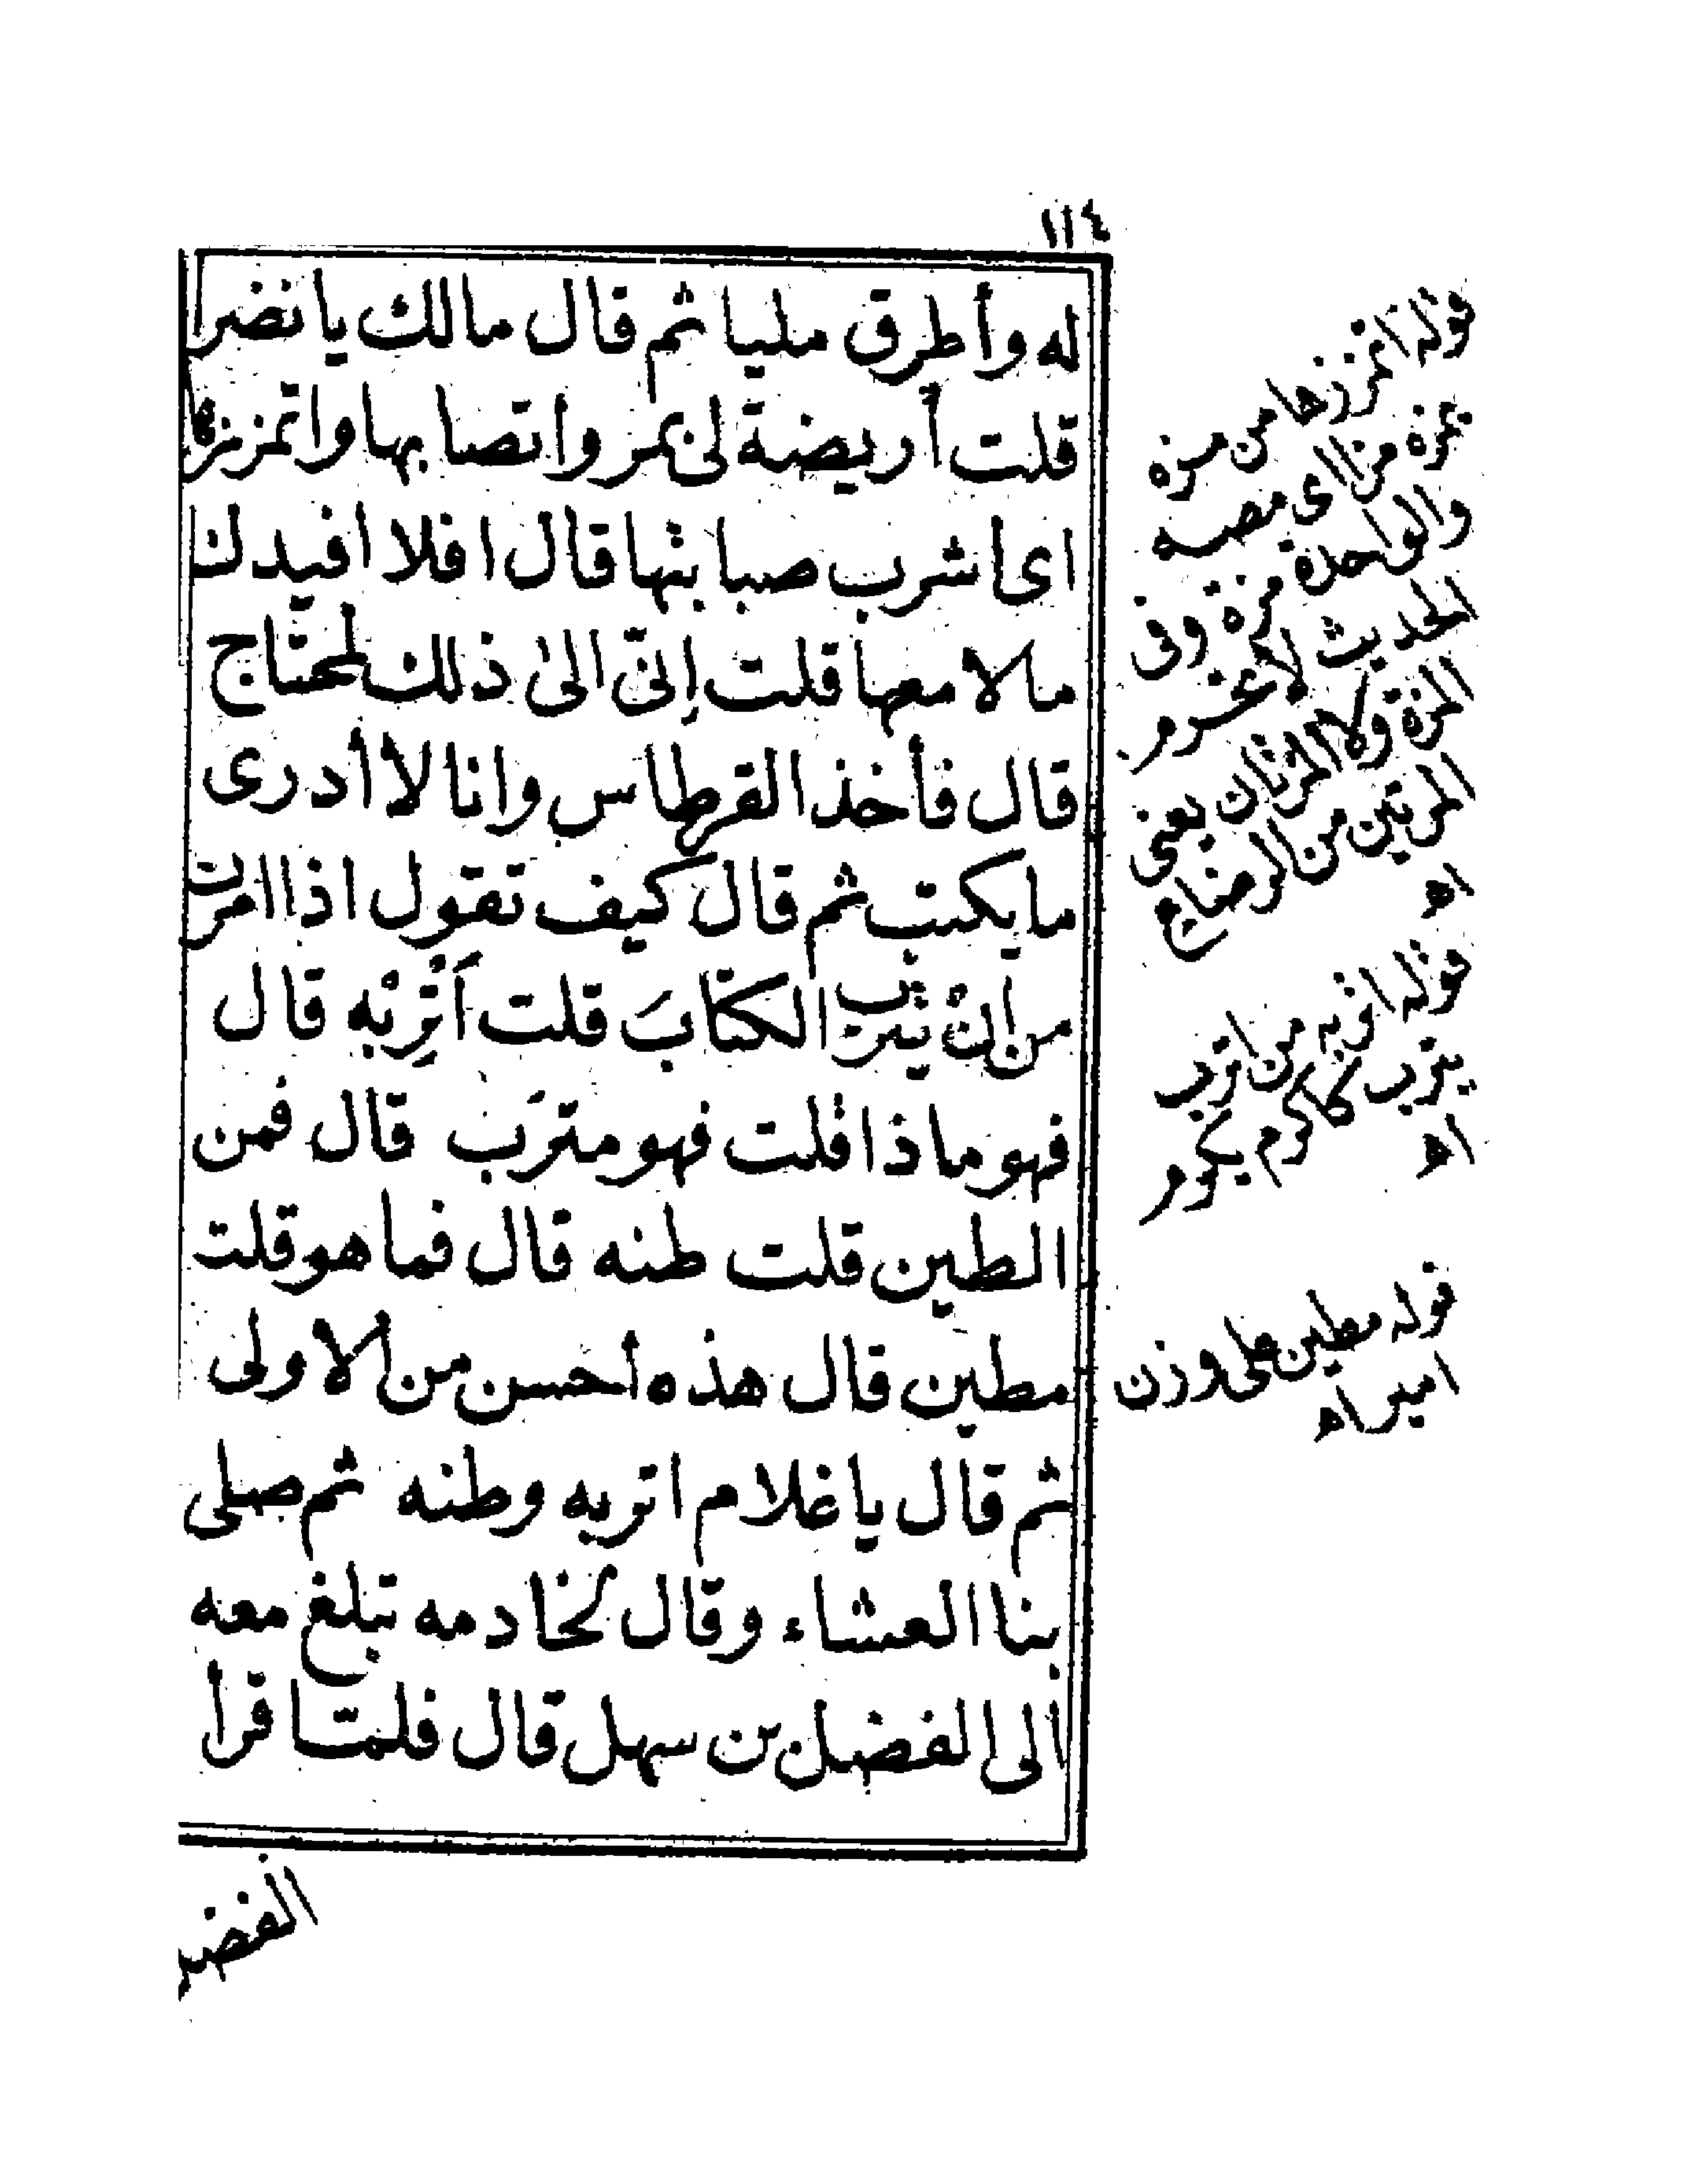 ١١٤
له وأطرق مليا ثم قال مالك يانضر
قلت أريضة لى بمرو اتصابها واتمززها
اى اشرب صبابتها قال افلا افيدك
مالا معها قلت إنّى الى ذلك لمحتاج
قال فأخذ القرطاس وانا لا أدرى
ما يكتب ثم قال كيف تقول اذا امرت
من انْ يترب الكتابَ قلت اَتْرِبْه قال
فهو ماذا قلت فهو مترَب قال فمن
الطين قلت طنه قال فما هو قلت
مطين قال هذه أحسن من الاولى
ثم قال يا غلام اتربه وطنه ثم صلى
بنا العشاء وقال لخادمه تبلغ معه
الى الفضل بن سهل قال فلمّا قرأ
الفضل
قوله اتمززها من مزه
يمزه مزا اى مصه
والواحدة مزة وفى
الحديث لا تحرم
المزة ولا المزتان يعنى
المرتين من الرضاع
اه
قوله اتربه من اترب
يترب كاكرم يكرم
اه
قوله مطين على وزن
امير اه